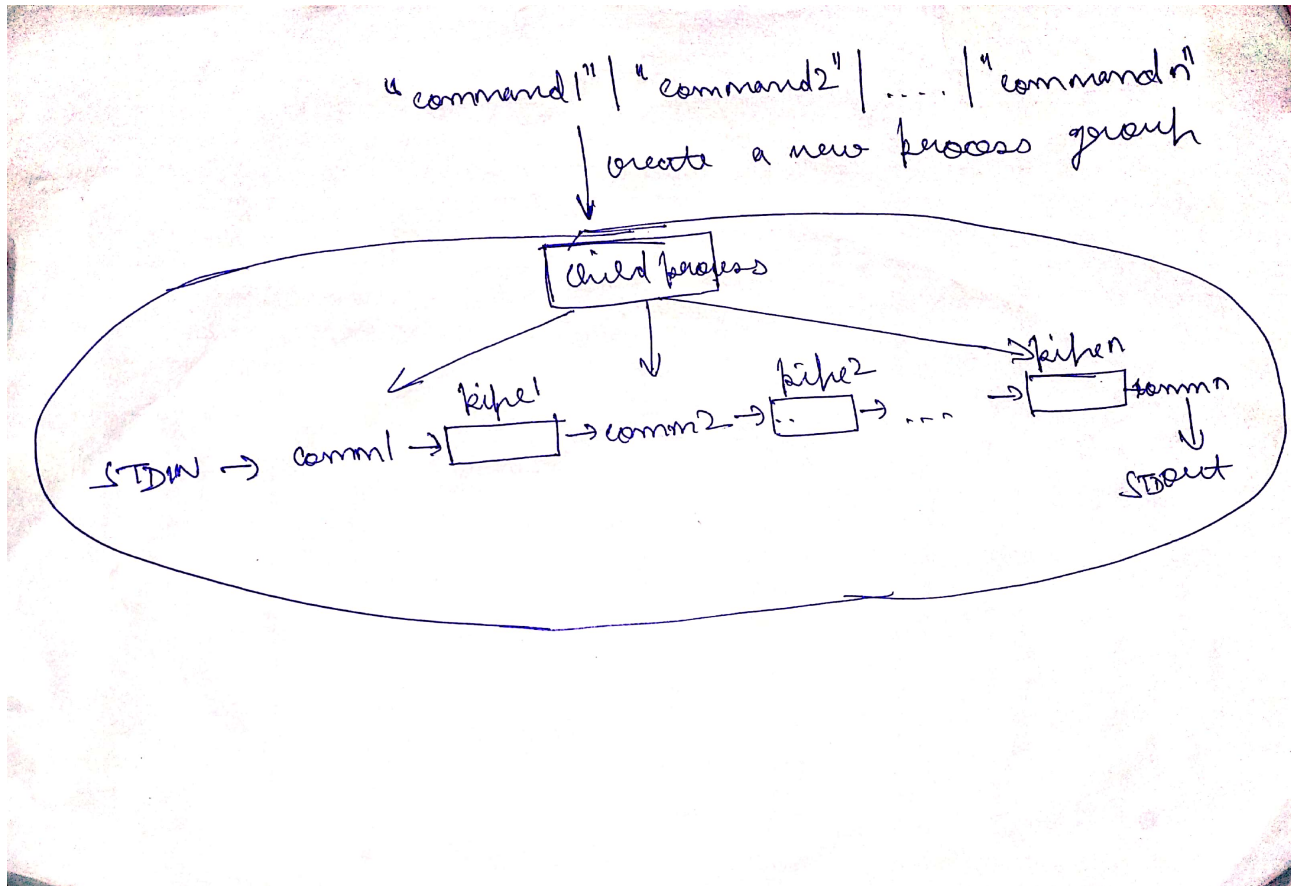 "command1" | "command2" | ..... | "command n"
create a new process group
child process
pipe1
pipe2
pipen
STDIN → comm1 → → comm2 → .. → .... → commn
STDOUT